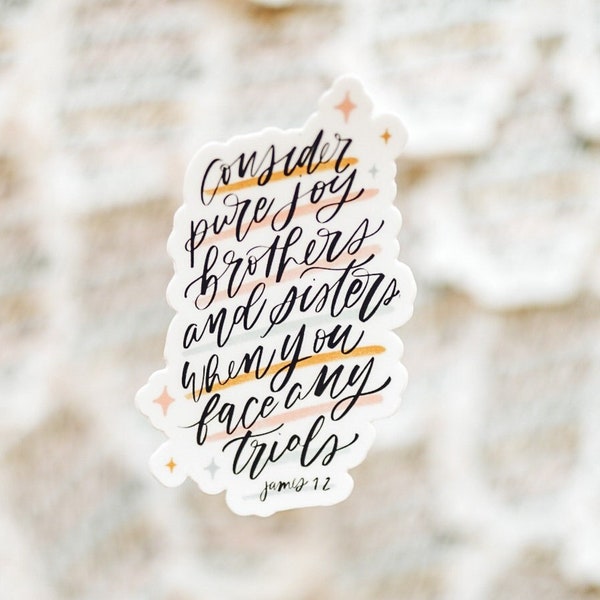 consider
pure joy
brothers
and sisters
when you
face any
trials
james 1 2